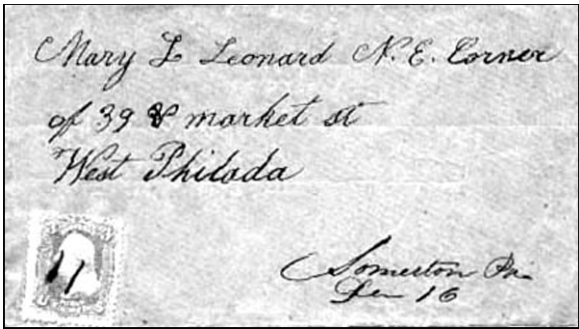 Mary L Leonard N. E. Corner
of 39 & market st
West Philada
Somerton Pa
16